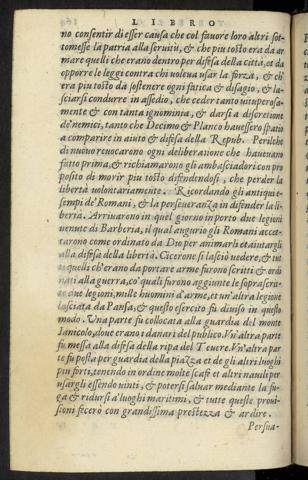 LIBRO
no consentir di esser causa che col fauore loro altri sot-
tomesse la patria alla seruitù, & che piu tosto era da ar
mare quelli che erano dentro per difesa della città, et da
opporre le leggi contra chi uoleua usar la forza, & ch'
era piu tosto da sostenere ogni fatica & disagio, & la-
sciarsi condurre in assedio, che ceder tanto uituperosa-
mente & con tanta ignominia, & darsi a discretione
de' nemici, tanto che Decimo & Planco hauessero spatio
a comparire in aiuto & difesa della Repub. Perilche
di nuouo reuocarono ogni deliberatione che haueuano
fatto prima, & richiamarono gli ambasciadori con pro
posito di morir piu tosto difendendosi, che perder la
libertà uolontariamente. Ricordando gli antiqui e-
sempi de' Romani, & la perseueranza in difender la li-
bertà. Arriuarono in quel giorno in porto due legioni
uenute di Barberia, il qual augurio gli Romani accet-
tarono come ordinato da Dio per animarli et aiutargli
alla difesa della libertà. Cicerone si lasciò uedere, & tut
ti quelli ch'erano da portare arme furono scritti & ordi
nati alla guerra, co' quali furono aggiunte le soprascrit-
te due legioni, mille huomini d'arme, et un'altra legione
lasciata da Pansa, & questo esercito fu diuiso in questo
modo. Una parte fu collocata alla guardia del monte
Ianicolo, doue erano i danari del publico. Vn'altra parte
fu messa alla difesa della ripa del Teuere. Vn'altra par
te fu posta per guardia della piazza et de gli altri luoghi
piu forti, tenendo in ordine molte scafe et altri nauili per
usargli essendo uinti, & potersi saluar mediante la fu-
ga & ridursi a' luoghi maritimi, & tutte queste proui-
sioni fecero con grandissima prestezza & ardire.
Persua-